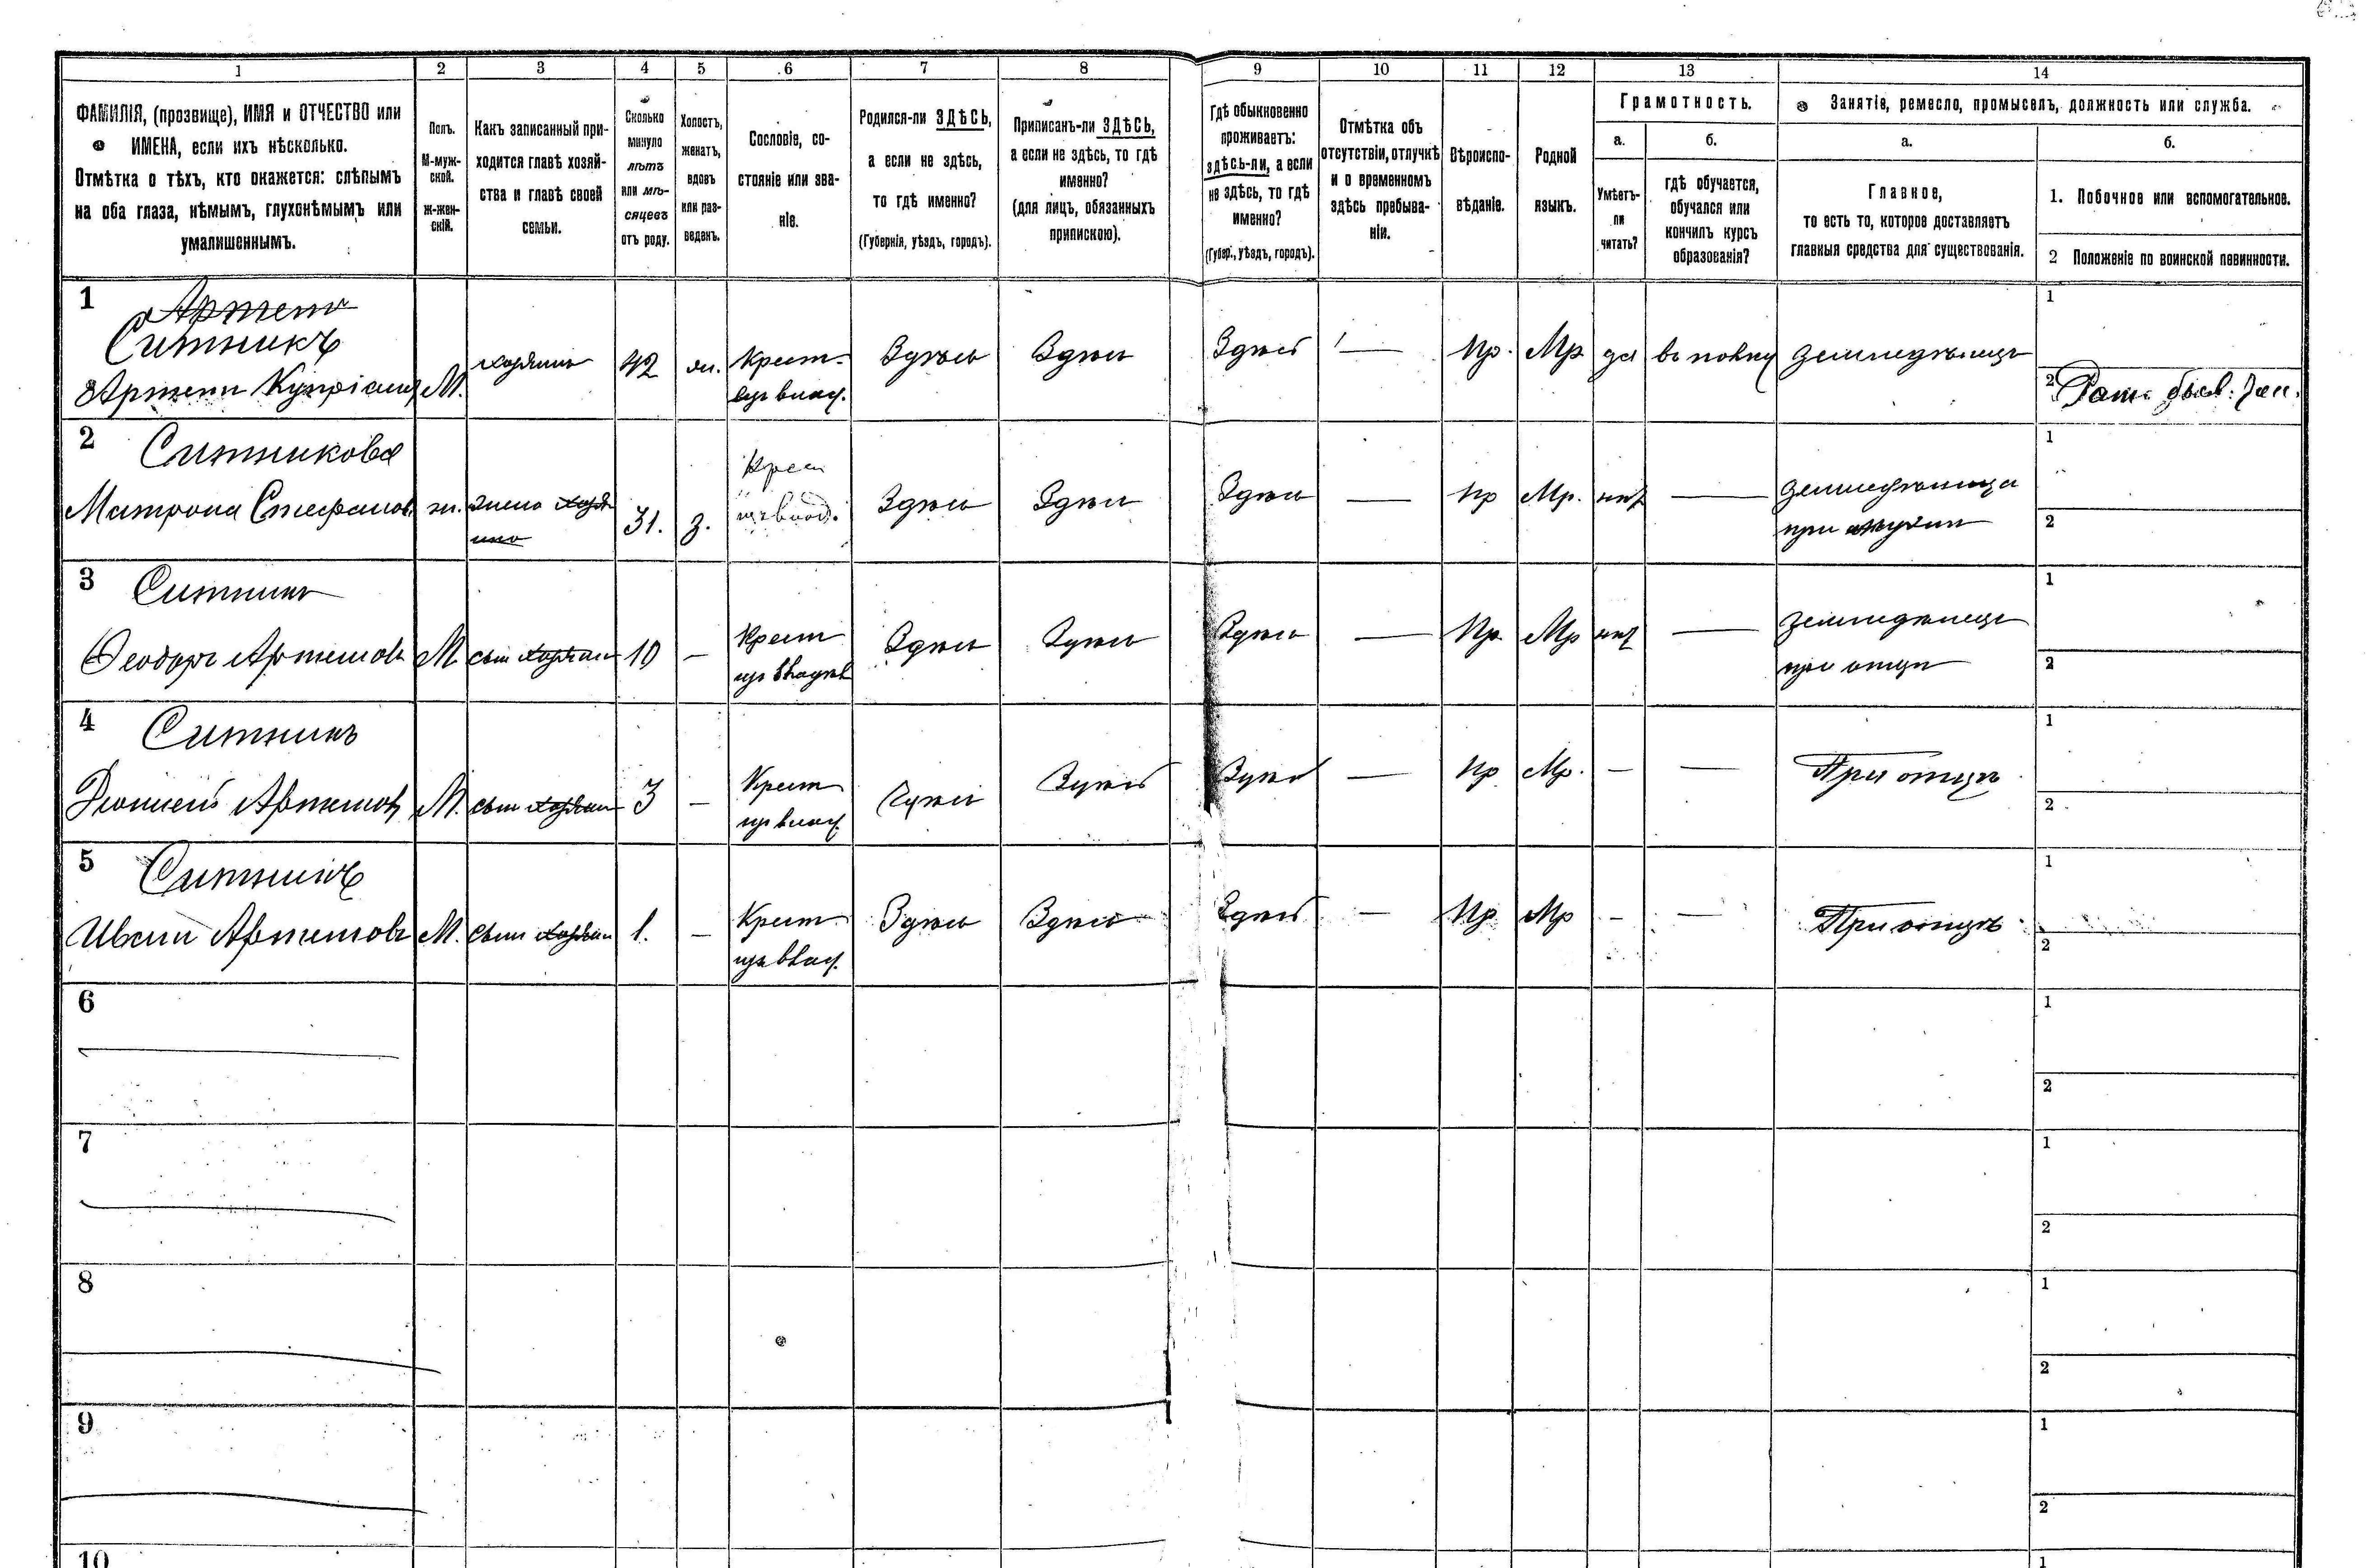 1 2 3 4 5 6 7 8 9 10 11 12 13 14
ФАМИЛІЯ, (прозвище), ИМЯ и ОТЧЕСТВО или
ИМЕНА, если ихъ нѣсколько.
Отмѣтка о тѣхъ, кто окажется: слѣпымъ
на оба глаза, нѣмымъ, глухонѣмымъ или
умалишеннымъ.
Полъ.
М-муж-
ской.
Ж-жен-
скій.
Какъ записанный при-
ходится главѣ хозяй-
ства и главѣ своей
семьи.
Сколько
минуло
лѣтъ
или мѣ-
сяцевъ
отъ роду.
Холостъ,
женатъ,
вдовъ
или раз-
веденъ.
Сословіе, со-
стояніе или зва-
ніе.
Родился-ли ЗДѢСЬ,
а если не здѣсь,
то гдѣ именно?
(Губернія, уѣздъ, городъ).
Приписанъ-ли ЗДѢСЬ,
а если не здѣсь, то гдѣ
именно?
(для лицъ, обязанныхъ
припискою).
Гдѣ обыкновенно
проживаетъ:
здѣсь-ли, а если
не здѣсь, то гдѣ
именно?
(Губер., уѣздъ, городъ).
Отмѣтка объ
отсутствіи, отлучкѣ
и о временномъ
здѣсь пребыва-
ніи.
Вѣроиспо-
вѣданіе.
Родной
языкъ.
Грамотность.
а.
Умѣетъ-
ли
читать?
б.
гдѣ обучается,
обучался или
кончилъ курсъ
образованія?
Занятіе, ремесло, промыселъ, должность или служба.
а.
Главное,
то есть то, которое доставляетъ
главныя средства для существованія.
б.
1. Побочное или вспомогательное.
2 Положеніе по воинской повинности.
1
Артемъ
Ситникъ
Артемъ М. хозяинъ 42 ж. Крест-
Здѣсь Здѣсь Здѣсь — Пр. Мр да земледѣлецъ
1
2
2 Ситникова
Матрона Стефанов. ж. жена
31. з. Крест
Здѣсь Здѣсь Здѣсь — Пр Мр. нѣт —
при мужѣ
1
2
3 Ситникъ
Феодоръ Артемовъ М сын хозяин 10 — Крест
Здѣсь Здѣсь Здѣсь — Пр. Мр нѣт — земледѣлецъ
при отцѣ
1
2
4 Ситникъ
Артемов М. сын хозяин 3 — Крест
Здѣсь Здѣсь Здѣсь — Пр Мр. — — При отцѣ
1
2
5 Ситникъ
Иван Артемовъ М. сын хозяин 1. — Крест
Здѣсь Здѣсь Здѣсь — Пр Мр — — При отцѣ
1
2
6
1
2
7
1
2
8
1
2
9
1
2
10
1